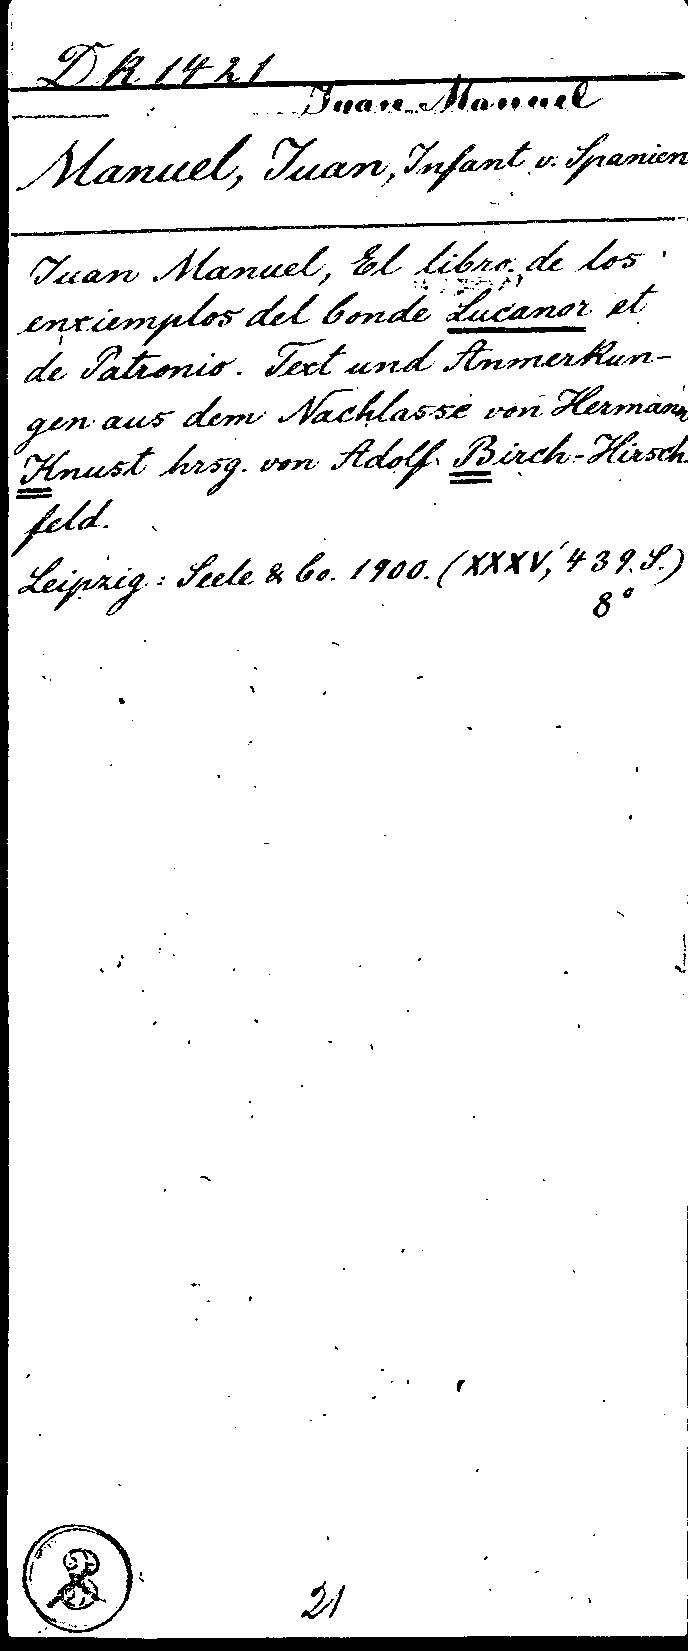 DK 1421
Juan Manuel
Manuel, Juan, Infant v. Spanien
Juan Manuel, El libro de los
enxiemplos del Conde Lucanor et
de Patronio. Text und Anmerkun-
gen aus dem Nachlasse von Hermann
Knust hrsg. von Adolf Birch-Hirsch-
feld.
Leipzig: Seele & Co. 1900. (XXXV, 439 S.)
8°
21